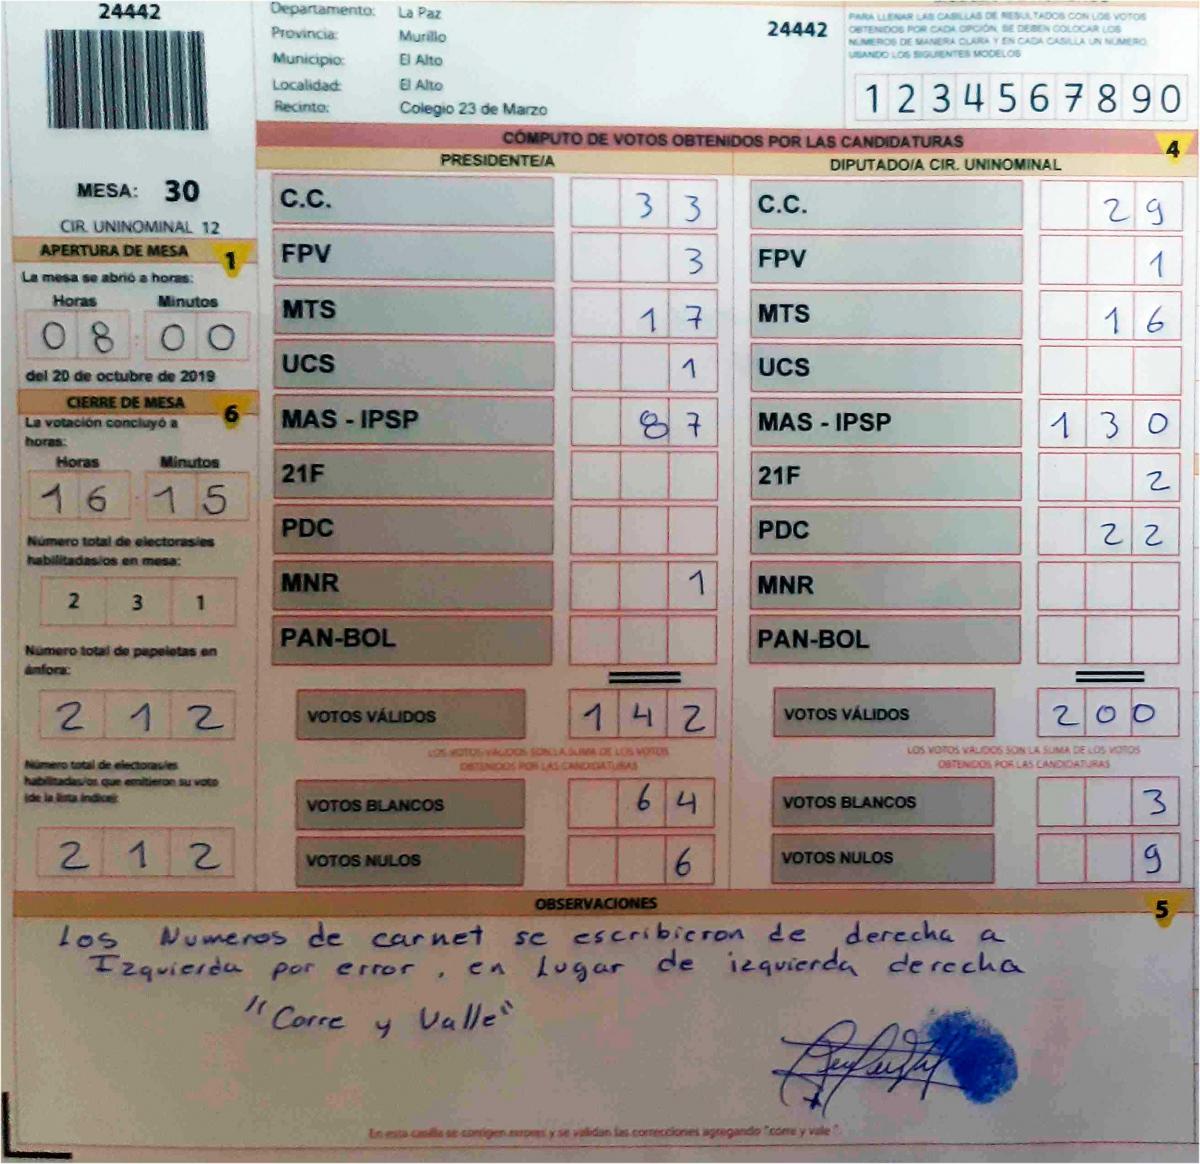 24442
MESA: 30
CIR. UNINOMINAL 12
APERTURA DE MESA 1
La mesa se abrió a horas:
Horas Minutos
08 : 00
del 20 de octubre de 2019
CIERRE DE MESA 6
La votación concluyó a
horas:
Horas Minutos
16 : 15
Número total de electoras/es
habilitadas/os en mesa:
2 3 1
Número total de papeletas en
ánfora:
2 1 2
Número total de electoras/es
habilitadas/os que emitieron su voto
(de la lista índice):
2 1 2
Departamento: La Paz
Provincia: Murillo
Municipio: El Alto
Localidad: El Alto
Recinto: Colegio 23 de Marzo
24442
PARA LLENAR LAS CASILLAS DE RESULTADOS CON LOS VOTOS
OBTENIDOS POR CADA OPCIÓN, SE DEBEN COLOCAR LOS
NÚMEROS DE MANERA CLARA Y EN CADA CASILLA UN NÚMERO,
USANDO LOS SIGUIENTES MODELOS
1 2 3 4 5 6 7 8 9 0
CÓMPUTO DE VOTOS OBTENIDOS POR LAS CANDIDATURAS 4
PRESIDENTE/A
C.C. 33
FPV 3
MTS 17
UCS 1
MAS - IPSP 87
21F
PDC
MNR 1
PAN-BOL
VOTOS VÁLIDOS 142
LOS VOTOS VÁLIDOS SON LA SUMA DE LOS VOTOS
OBTENIDOS POR LAS CANDIDATURAS
VOTOS BLANCOS 64
VOTOS NULOS 6
DIPUTADO/A CIR. UNINOMINAL
C.C. 29
FPV 1
MTS 16
UCS
MAS - IPSP 130
21F 2
PDC 22
MNR
PAN-BOL
VOTOS VÁLIDOS 200
LOS VOTOS VÁLIDOS SON LA SUMA DE LOS VOTOS
OBTENIDOS POR LAS CANDIDATURAS
VOTOS BLANCOS 3
VOTOS NULOS 9
OBSERVACIONES 5
Los Numeros de carnet se escribieron de derecha a
Izquierda por error, en Lugar de izquierda derecha
"Corre y Valle"
En esta casilla se corrigen errores y se validan las correcciones agregando "corre y vale".